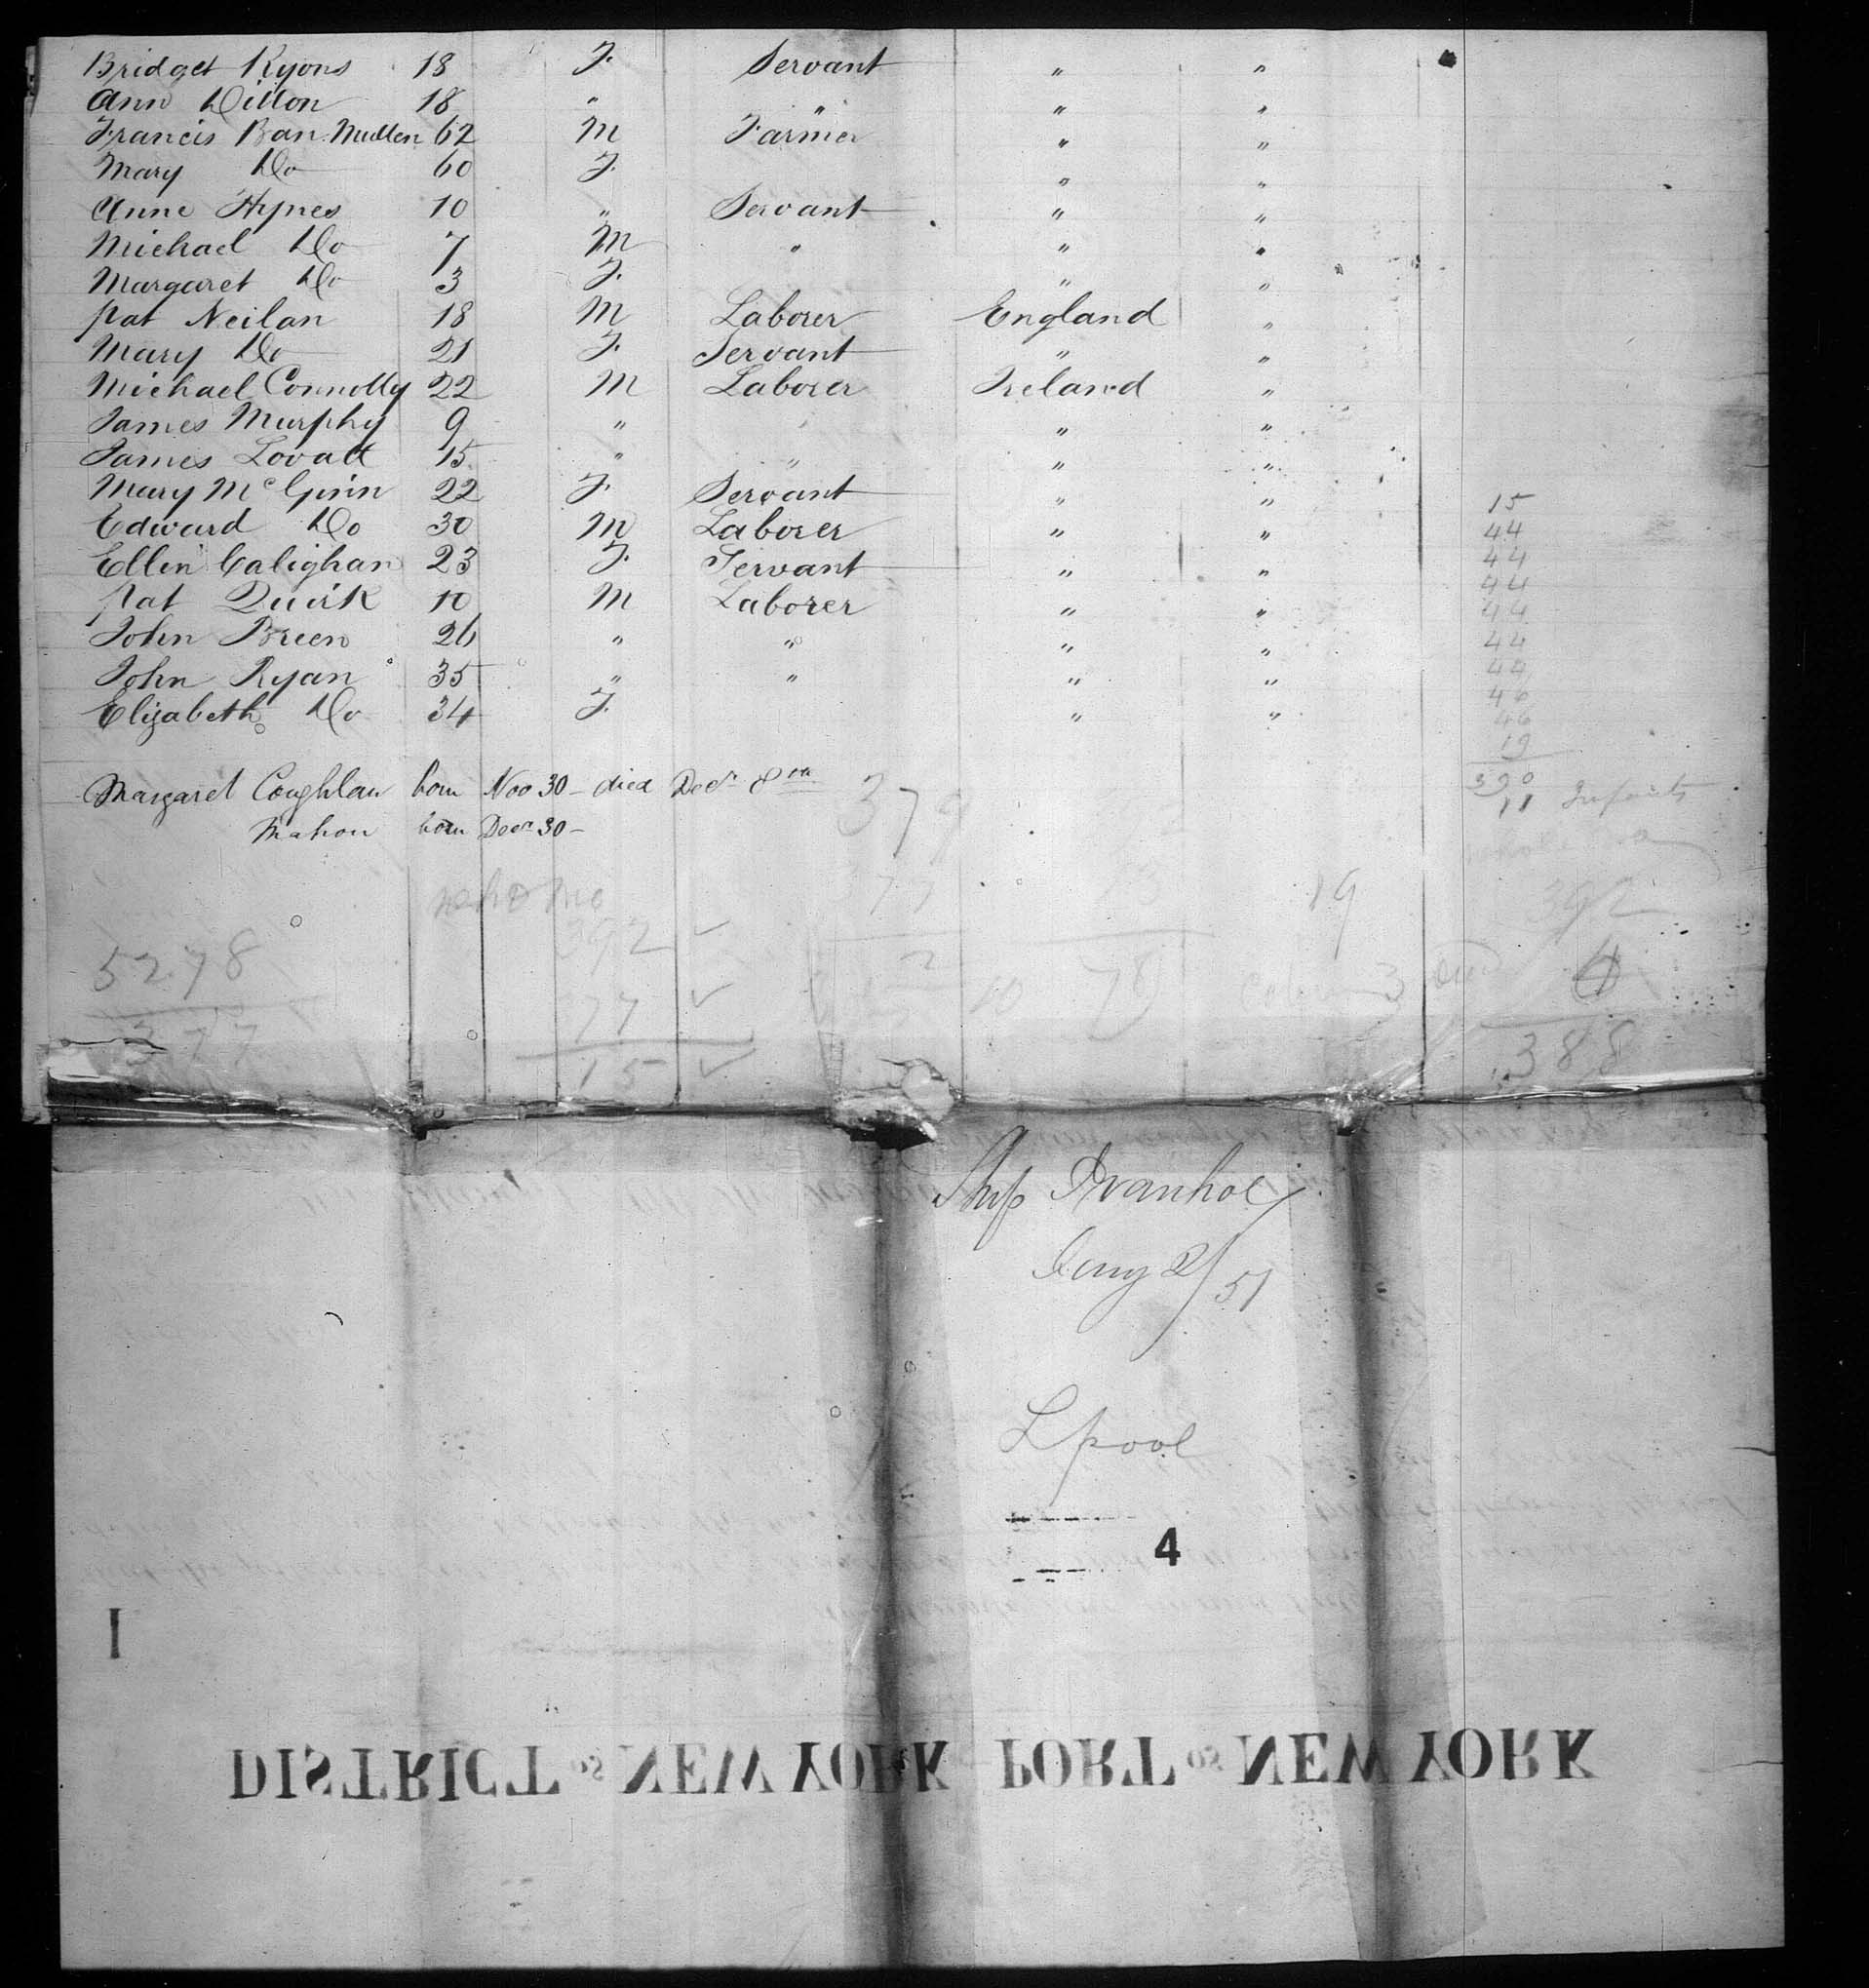 Bridget Kyons 18 F. Servant " "
Ann Dillon 18 " " " "
Francis Ban Mullen 62 M Farmer " "
Mary Do 60 F. " "
Anne Hynes 10 " Servant " "
Michael Do 7 M " " "
Margaret Do 3 F. " "
Pat Neilan 18 M Laborer England "
Mary Do 21 F. Servant " "
Michael Connolly 22 M Laborer Ireland "
James Murphy 9 " " " "
James Lovatt 15 " " " "
Mary McGinn 22 F. Servant " "
Edward Do 30 M Laborer " "
Ellen Calighan 23 F. Servant " "
Pat Quirk 10 M Laborer " "
John Breen 26 " " " "
John Ryan 35 " " " "
Elizabeth Do 34 F. " "
15
44
44
44
44
44
44
46
46
19
390
11 Infants
Margaret Coughlan born Nov 30 - died Decr 8th
Mahon born Decr 30 -
379
377
2
392
77
15
5278
377
78
19
392
4
388
Ship Ivanhoe
Jany 2/51
Lpool
4
I
DISTRICT OF NEW YORK PORT OF NEW YORK